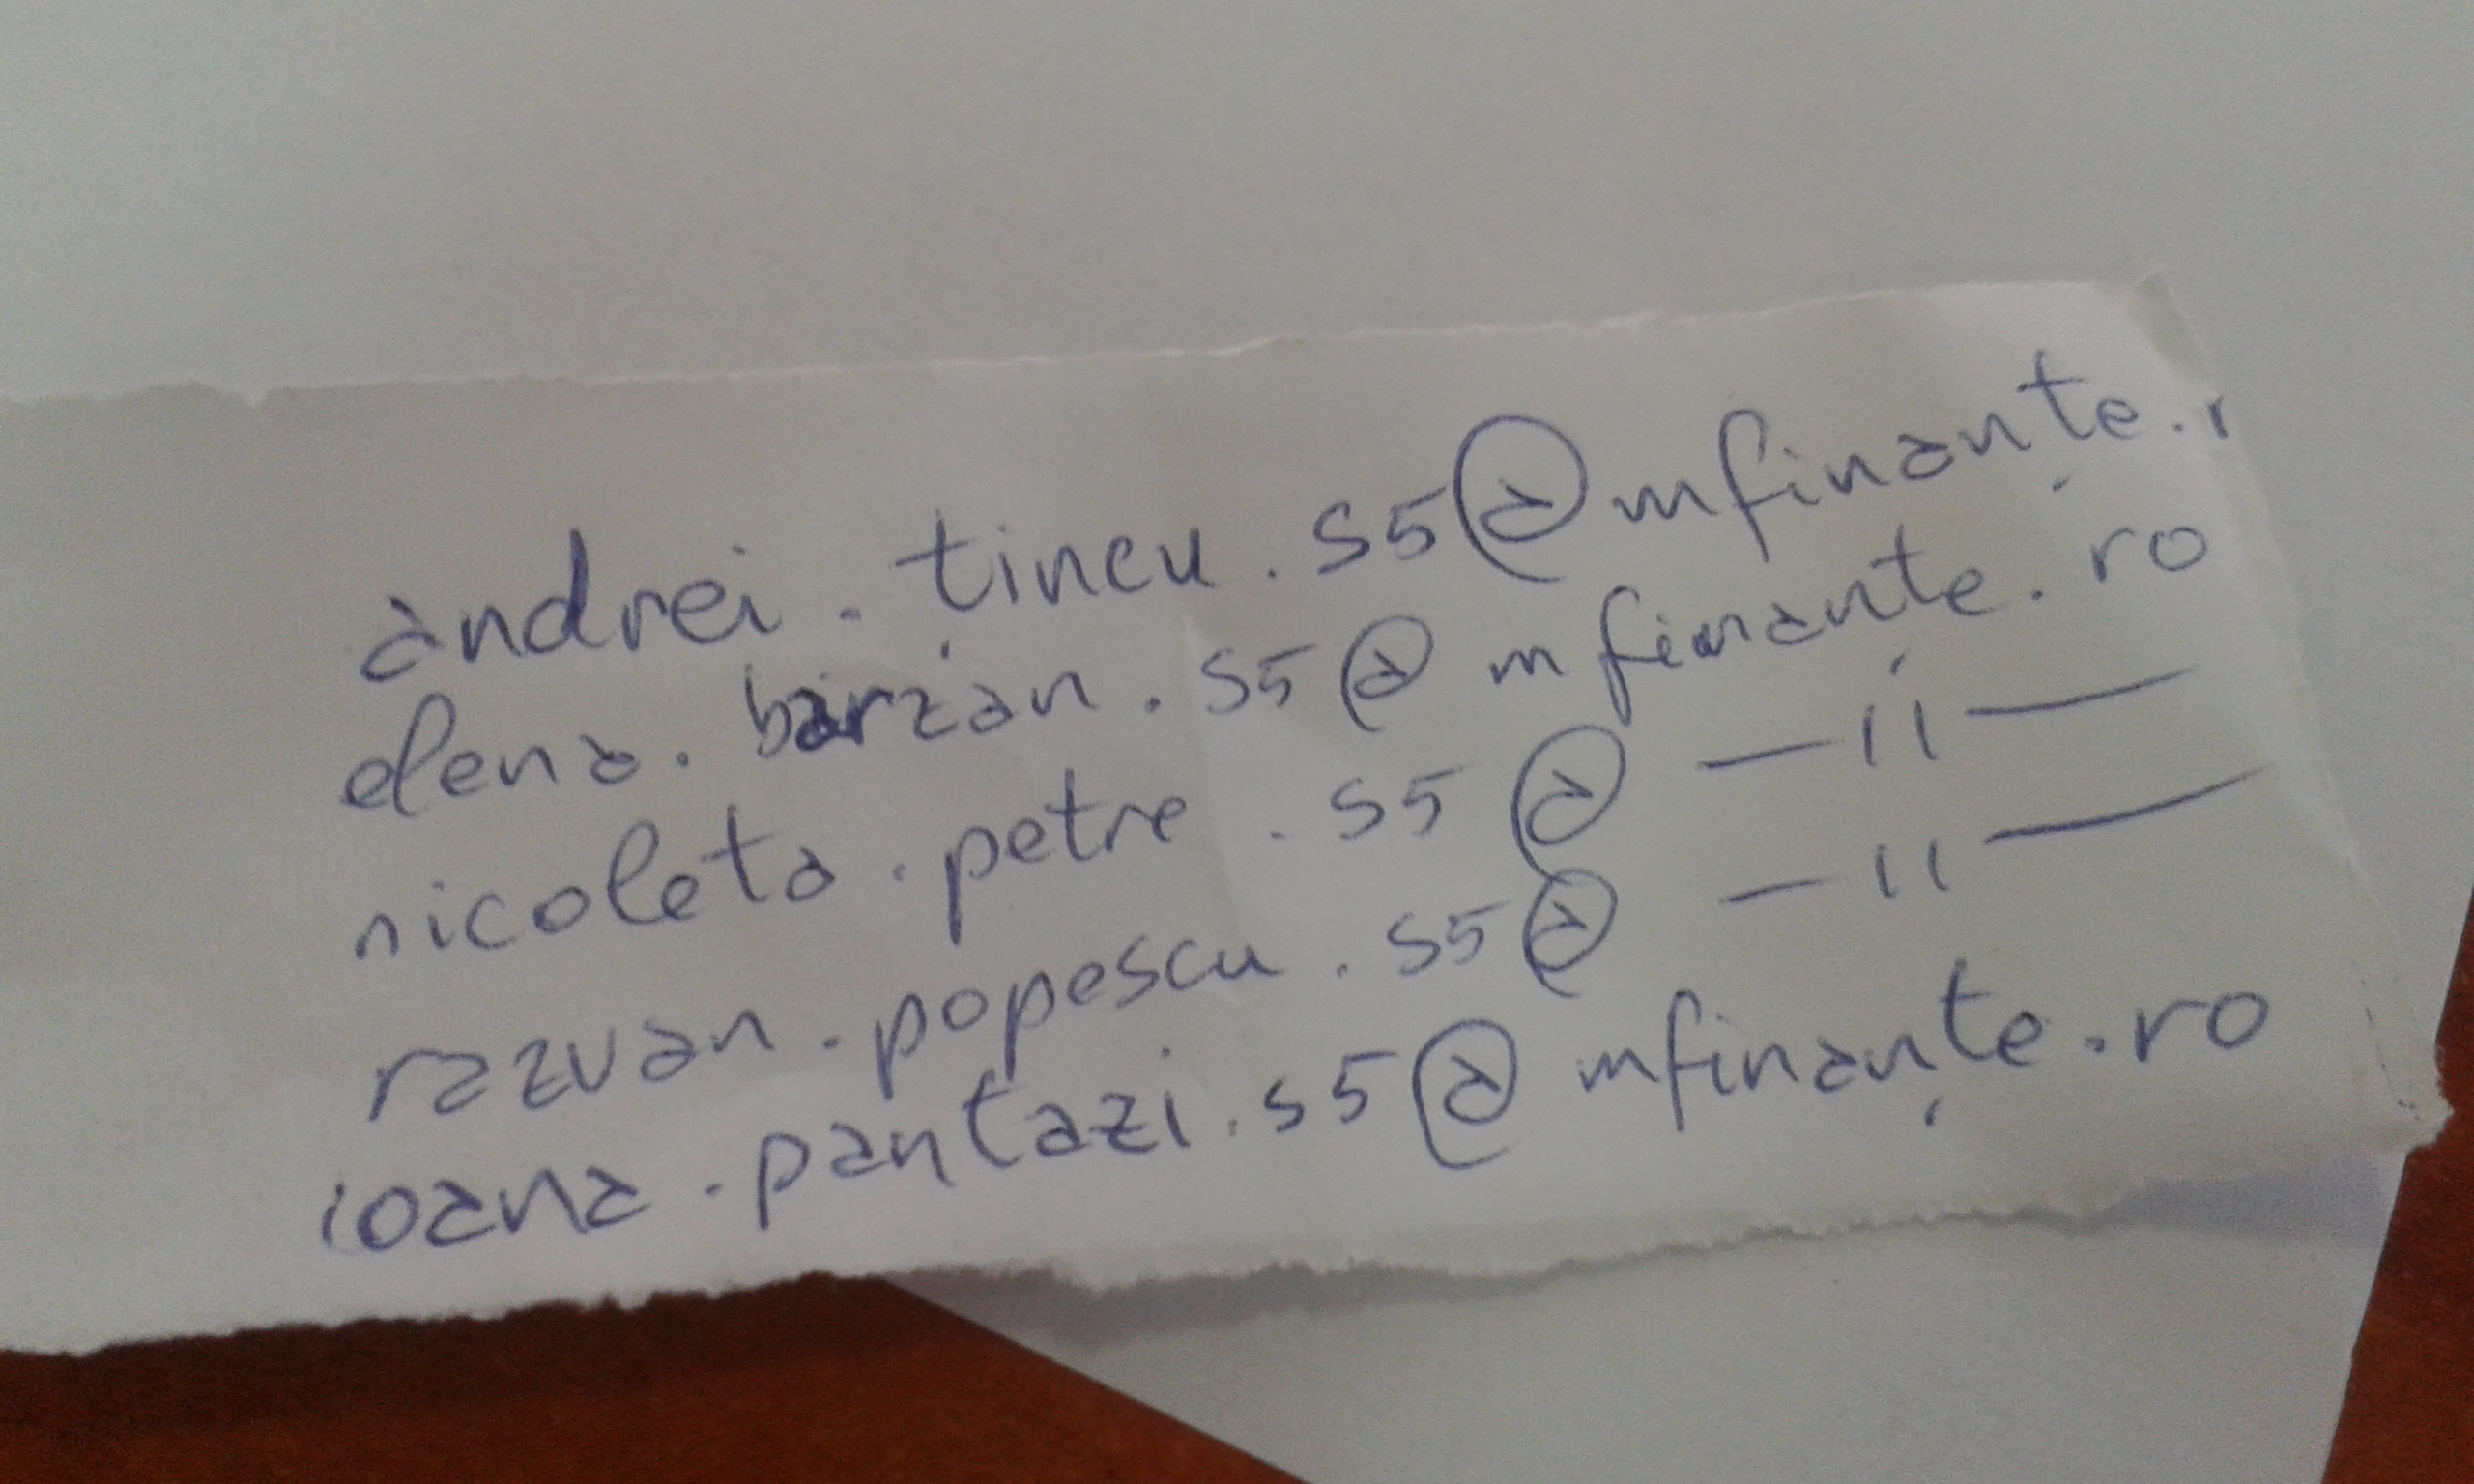 andrei.tincu.s5@mfinanțe.r
elena.barzan.s5@mfinanțe.ro
nicoleta.petre.s5@ —ıı—
razvan.popescu.s5@ —ıı—
ioana.pantazi.s5@mfinanțe.ro